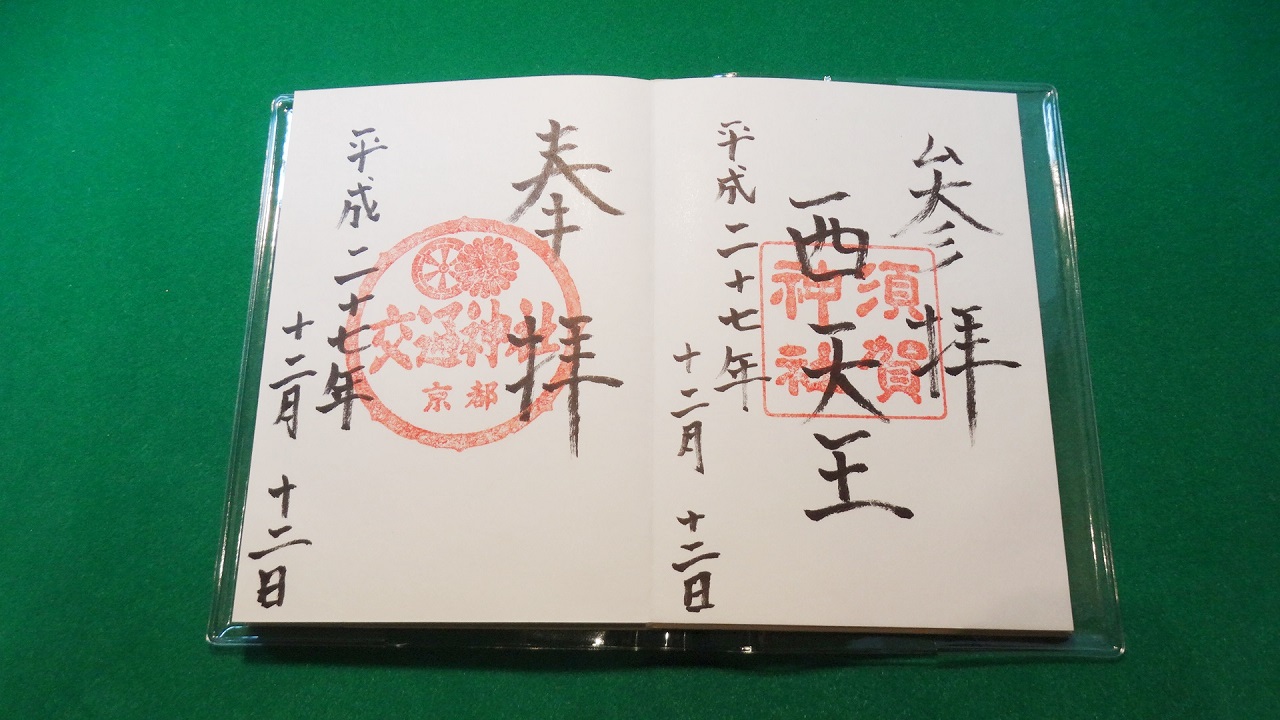 参拝
西天王
須賀
神社
平成二十七年
十二月 十二日
奉拝
交通神社
京都
平成二十七年
十二月 十二日